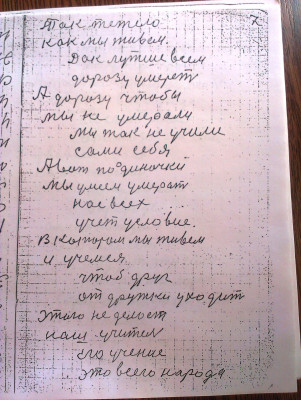 Так тежело
как мы живем.
Как лутше всем
доразу умерет
А доразу чтобы
мы не умерали
мы так не учили
сами себя
А вот по одиночки
мы умеем умерат
нас всех
учет условие.
В котором мы живем
и учемся
чтоб друг
от дружки уходит
этого не делает
наш учител
его учение
это всего народа